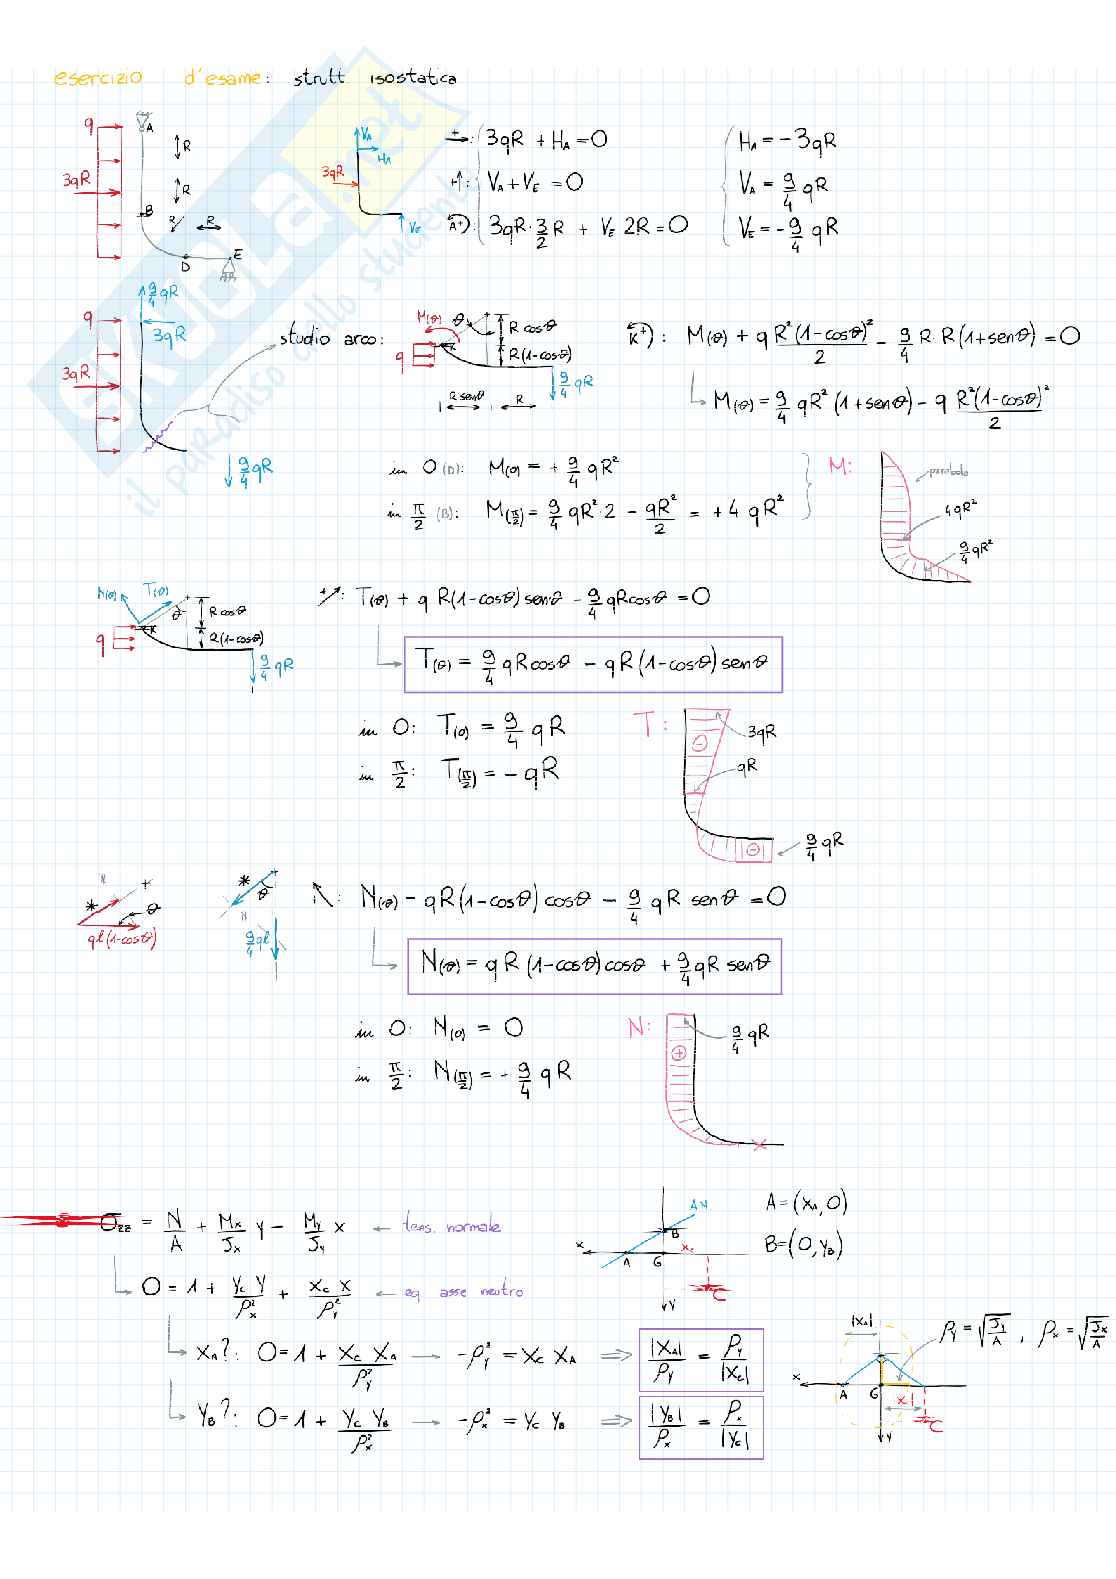 esercizio d'esame: strutt isostatica
q
A
R
3qR
R
B
R
R
D
E
V_A
H_A
3qR
V_E
→+: 3qR + H_A = 0
+↑: V_A + V_E = 0
A+): 3qR·3/2 R + V_E 2R = 0
H_A = -3qR
V_A = 9/4 qR
V_E = -9/4 qR
9/4 qR
q
3qR
3qR
9/4 qR
studio arco:
M(θ)
θ
R cosθ
R(1-cosθ)
q
9/4 qR
R senθ
R
K+): M(θ) + q R²(1-cosθ)²/2 - 9/4 R·R(1+senθ) = 0
M(θ) = 9/4 qR² (1+senθ) - q R²(1-cosθ)²/2
in 0 (D): M(0) = + 9/4 qR²
in π/2 (B): M(π/2) = 9/4 qR²·2 - qR²/2 = +4 qR²
M:
parabola
4qR²
9/4 qR²
N(θ)
T(θ)
θ
R cosθ
R(1-cosθ)
q
9/4 qR
+↗: T(θ) + q R(1-cosθ) senθ - 9/4 qR cosθ = 0
T(θ) = 9/4 qR cosθ - qR(1-cosθ) senθ
in 0: T(0) = 9/4 qR
in π/2: T(π/2) = - qR
T:
3qR
qR
9/4 qR
*
θ
qℓ(1-cosθ)
*
θ
9/4 qℓ
↖: N(θ) - qR(1-cosθ) cosθ - 9/4 qR senθ = 0
N(θ) = qR (1-cosθ) cosθ + 9/4 qR senθ
in 0: N(0) = 0
in π/2: N(π/2) = - 9/4 qR
N:
9/4 qR
σ_zz = N/A + M_x/J_x y - M_y/J_y x ← tens. normale
0 = 1 + y_c y/ρ_x² + x_c x/ρ_y² ← eq. asse neutro
x_A?: 0 = 1 + x_c x_A/ρ_y² → -ρ_y² = x_c x_A ⇒ |x_A|/ρ_y = ρ_y/|x_c|
y_B?: 0 = 1 + y_c y_B/ρ_x² → -ρ_x² = y_c y_B ⇒ |y_B|/ρ_x = ρ_x/|y_c|
x
A
G
B
x_c
C
y
A = (x_A, 0)
B = (0, y_B)
|x_A|
ρ_y = √(J_y/A) , ρ_x = √(J_x/A)
x
A
G
C
y
skuola.net
il paradiso dello studente